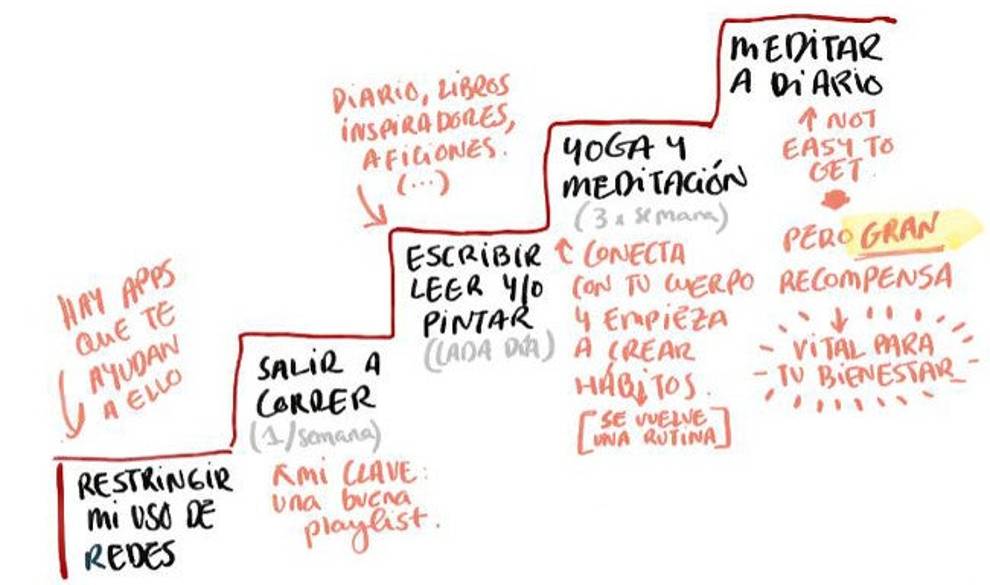 HAY APPS
QUE TE
AYUDAN
A ELLO
RESTRINGIR
MI USO DE
REDES
SALIR A
CORRER
(1/semana)
MI CLAVE:
una buena
playlist.
DIARIO, LIBROS
INSPIRADORES,
AFICIONES.
(...)
ESCRIBIR
LEER Y/O
PINTAR
(CADA DÍA)
YOGA Y
MEDITACIÓN
(3 x semana)
CONECTA
CON TU CUERPO
Y EMPIEZA
A CREAR
HÁBITOS.
[SE VUELVE
UNA RUTINA]
MEDITAR
A DIARIO
NOT
EASY TO
GET.
PERO GRAN
RECOMPENSA
VITAL PARA
TU BIENESTAR